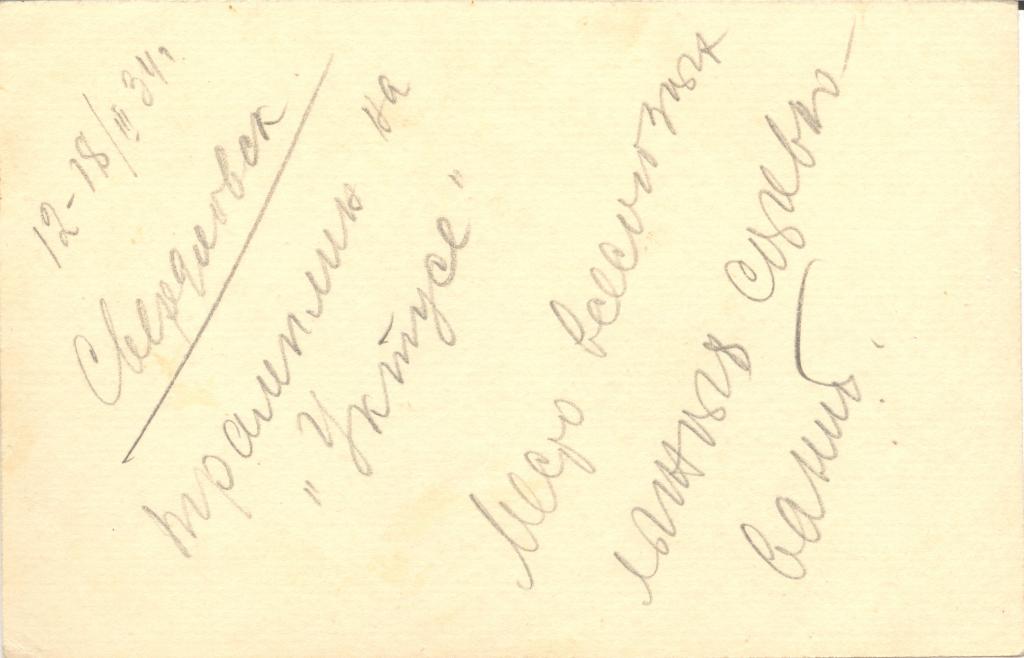 12-18/III 34г.
Свердловск
трамплин на
"Уктусе"
всесоюзных
лыжных соревно
ваний.